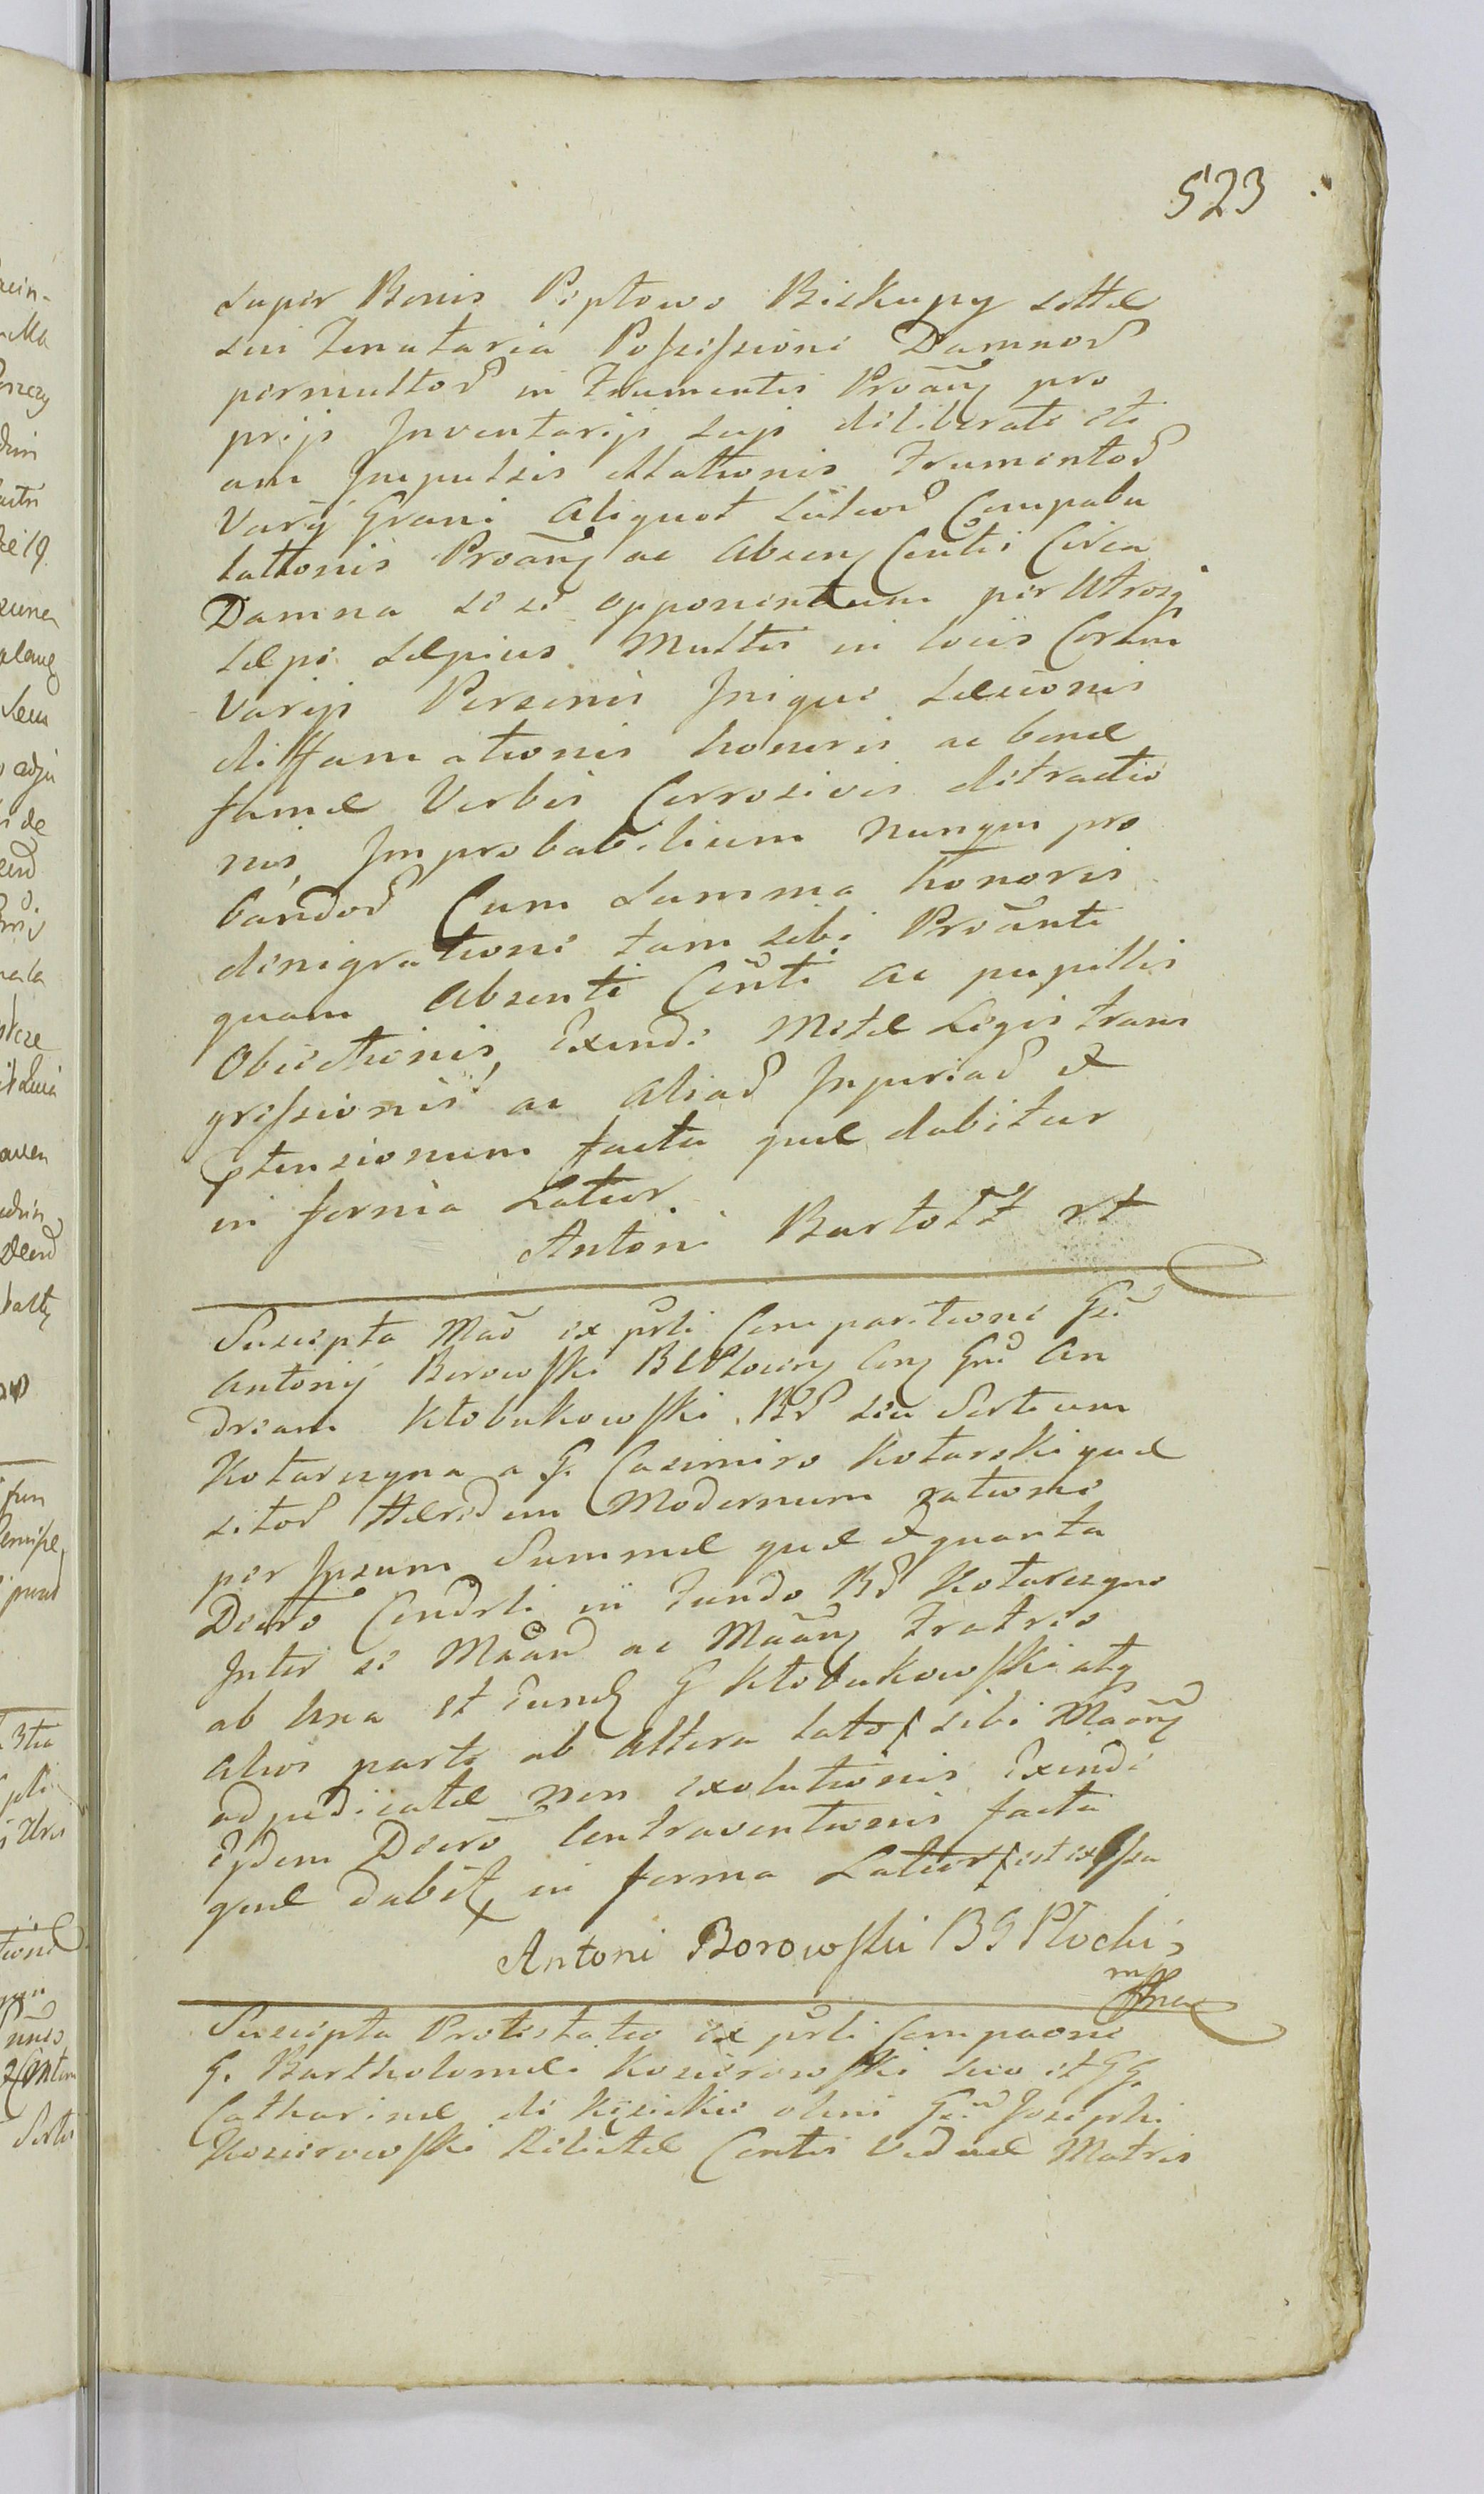 523
super Bonis Piptowo Biskupy
sui Tenutaria Possessione Damnor
permultor in Frumentis Proãnq pro
prijs Inventarijs suis deliberate eti
am Impulsis illationis Frumentor
Varÿ Grani aliquot Compabu
lattionis Proãnq ac Absenq Centis Circa
Damna sese opponendum per Utrosq
sæpe sæpius Multis in locis Coram
Varijs Personis Inique Læsionis
diffamationis honoris ac bonæ
famæ Verbis Corrosivis detractio
nis, Improbabilium nunqm pro
bandor Cum summa honoris
denigratione tam sibi Proãnti
quam Absenti Centi ac pupillis
Obiectionis, Exinde Metæ Legis trans
gressionis ac aliar Injuriar et
ptensionum facta quæ dabitur
in forma Latior.
Antoni Bartold rt
Suscepta Mãõ ex psli Comparitione Gsi
Antonij Borowski BG Plocen Conq Gnũ An
dream Kłobukowski Br seu Sortium
Kotarczyna a G. Casimiro Kotarski quæ
sitor Hæredem Modernum ratione
per Ipsum Summæ quæ et quanta
Decrto Condsli in Fundo Br Kotarczyno
Inter se Mãan ac Mãanq Fratres
ab Una et eundq G Kłobukowski atq
alios parte ab Altera lato sibi Mãanq
adjudicatæ non exolutionis Exinde
Ejdem Decro Contraventionis facta
quæ dabit in forma Latior est expssa
Antoni Borowski BG Płocki
mp
Suscepta Protestatio ex psli Compaone
G. Bartholomæi Kosiorowski suo et GG.
Catharinæ de olim Gsi Josephi
Kosiorowski Relictæ Contis Viduæ Matris